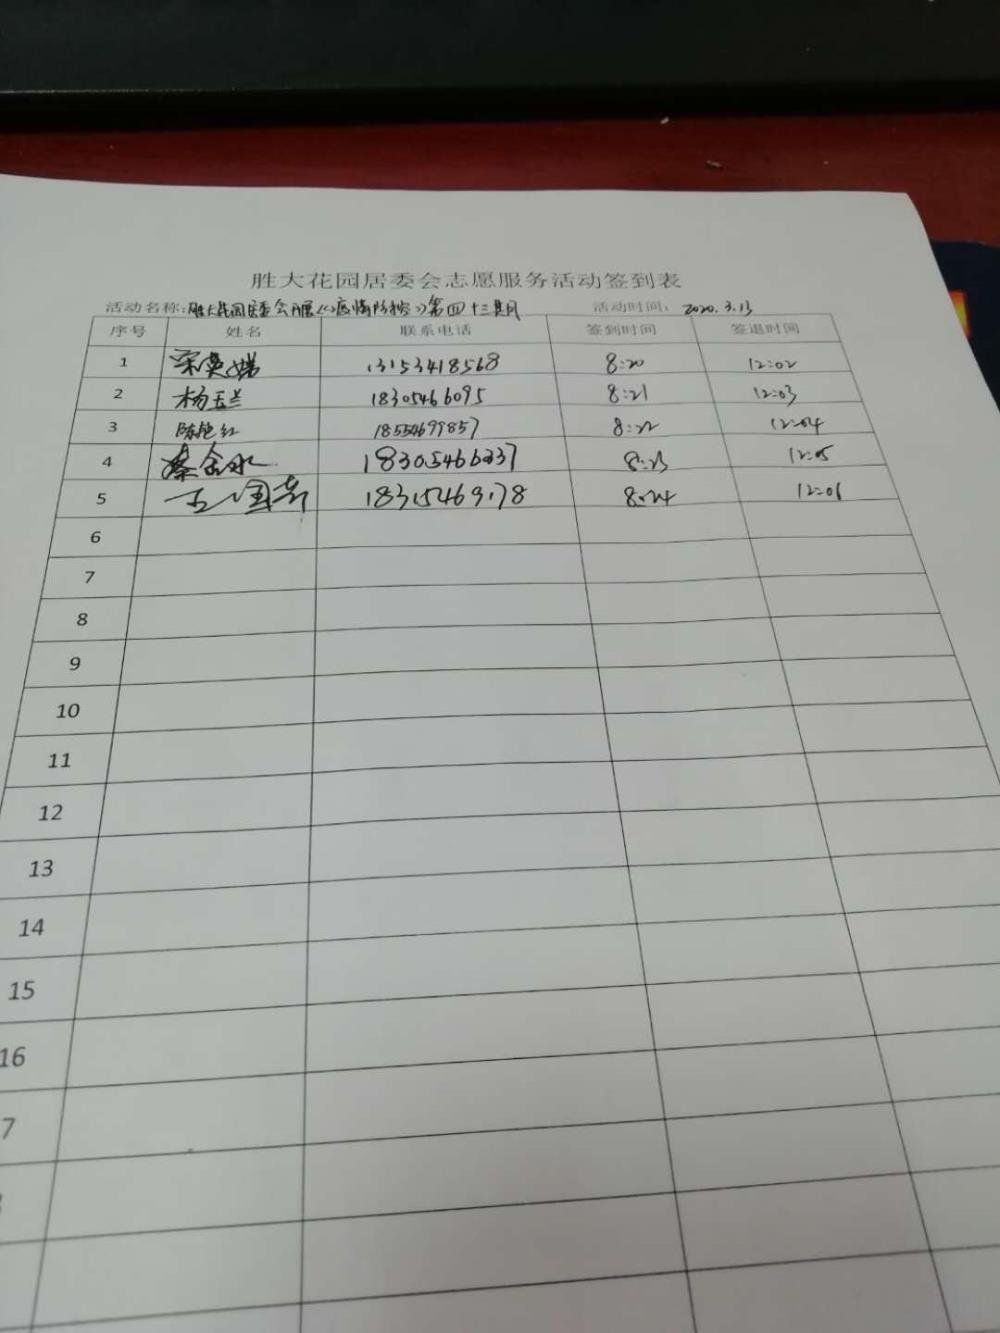 胜大花园居委会志愿服务活动签到表
活动名称:胜大花园居委会开展《疫情防控》第四十三期 活动时间: 2020.3.13
序号 姓名 联系电话 签到时间 签退时间
1 宋英娣 13153418568 8:20 12:02
2 杨玉兰 18305466095 8:21 12:03
3 陈艳红 18554699857 8:22 12:04
4 秦金水 18305466337 8:23 12:05
5 王国 18315469178 8:24 12:06
6
7
8
9
10
11
12
13
14
15
16
7